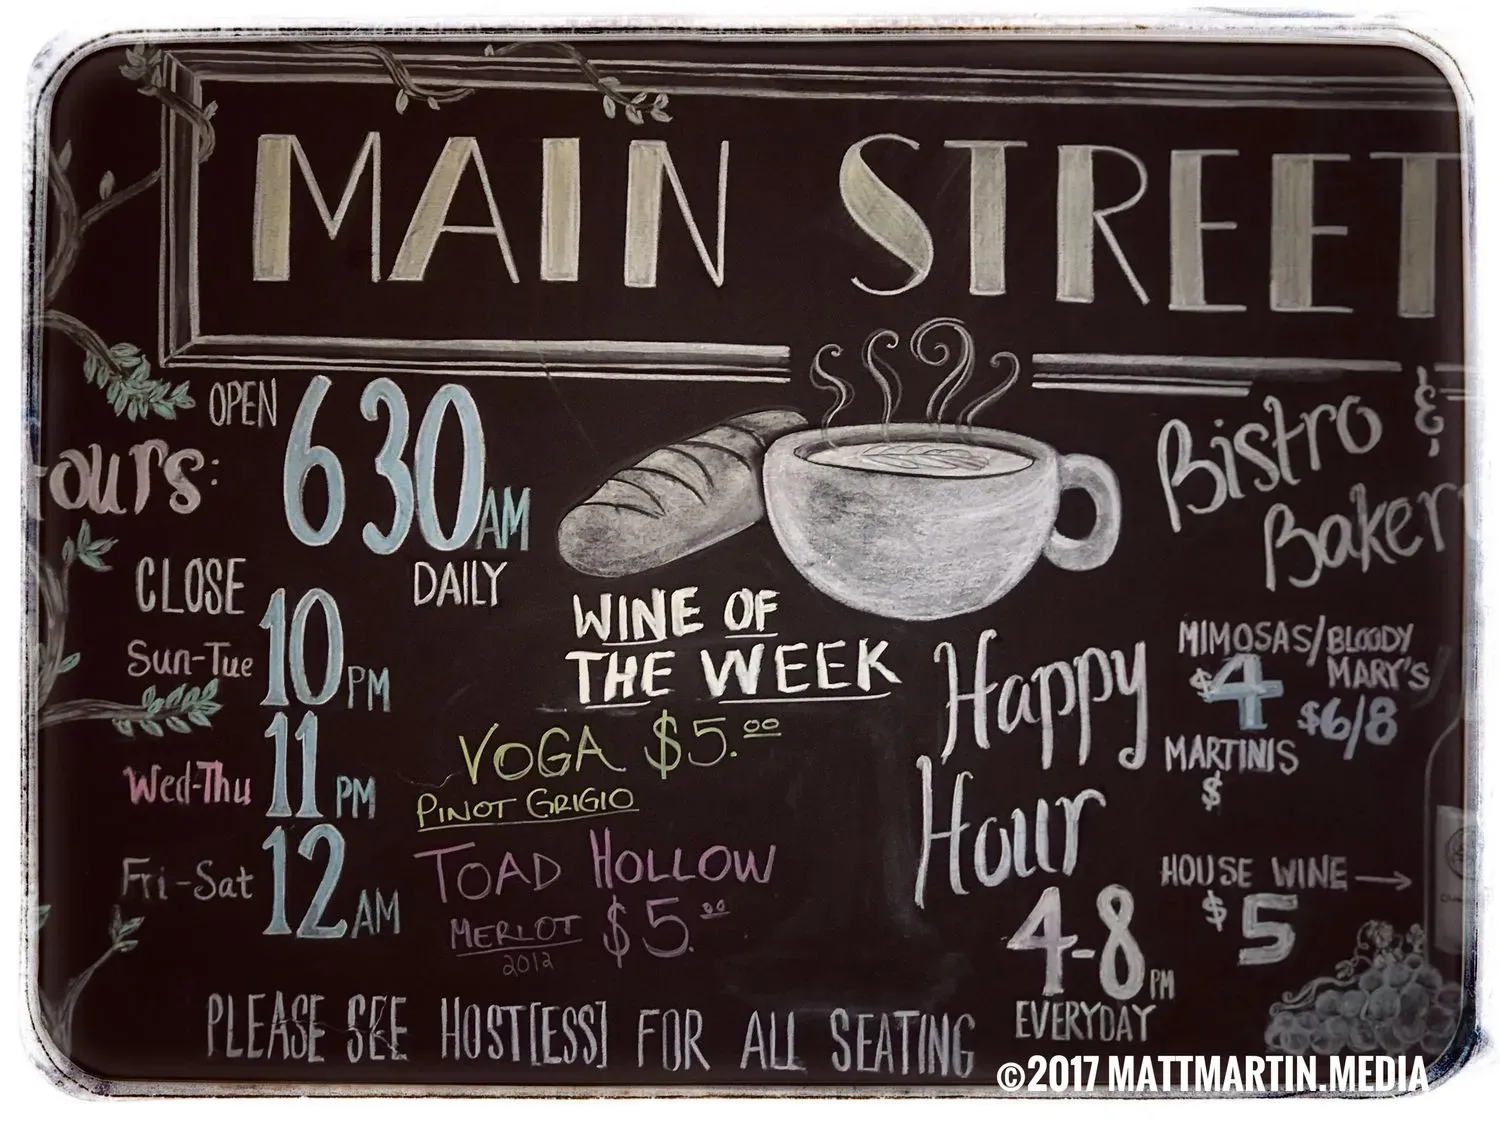 MAIN STREET
Bistro &
Baker
ours:
OPEN 630AM
DAILY
CLOSE
Sun-Tue 10PM
Wed-Thu 11PM
Fri-Sat 12AM
WINE OF
THE WEEK
VOGA $5.00
PINOT GRIGIO
TOAD HOLLOW
MERLOT $5.00
2012
Happy
Hour
4-8PM
EVERYDAY
MIMOSAS/BLOODY
MARY'S
$4 $6/8
MARTINIS
$
HOUSE WINE →
$5
PLEASE SEE HOST[ESS] FOR ALL SEATING
©2017 MATTMARTIN.MEDIA